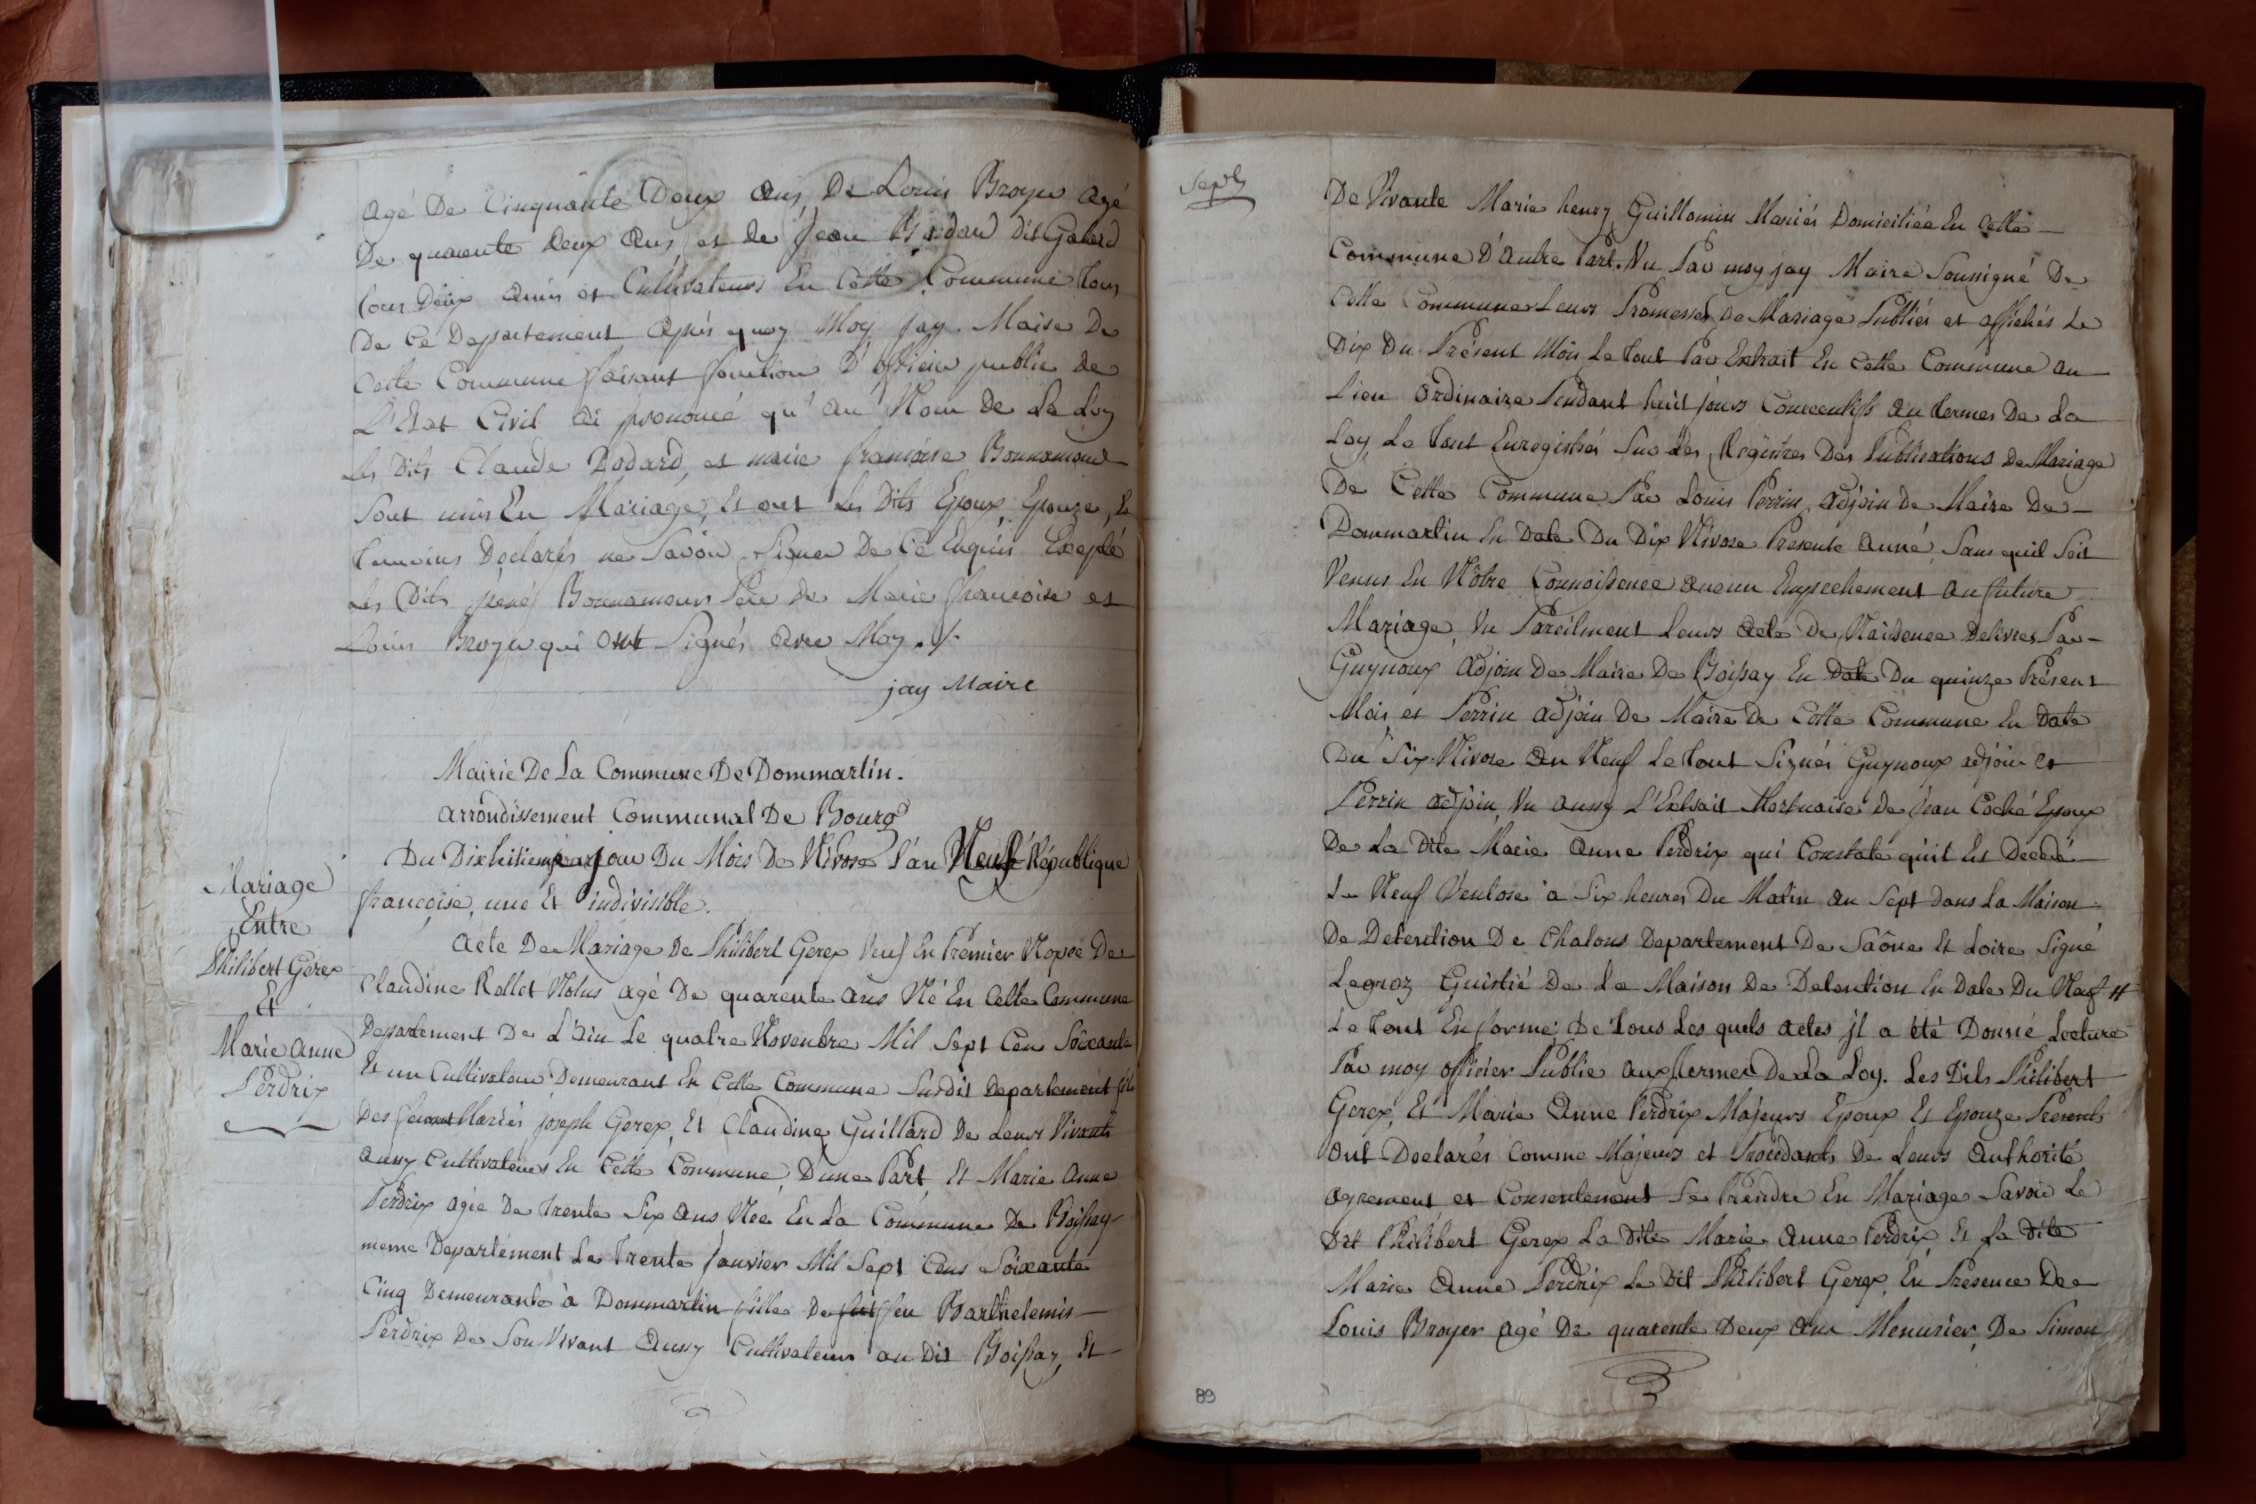 agé De Cinquante Deux ans, De Louis Broyer agé
De quarente Deux ans, et de Jean Bredan dit Galard
tous Deux amis et Cultivateurs En Cette Commune tous
De Ce Departement après quoy Moy Jay Maire De
Cette Commune faisant fonction D'officier public de
L'Etat Civil ai prononcé qu'au Nom De La Loy
Les Dits Claude Dodard, et marie françoise Bonnamour
Sont unis En Mariage, Et ont Les Dits Epoux Epouze, Et
temoins Declarés ne Savoir Signer De Ce Enquis Excepté
Les Dits Bonnamour Père De Marie françoise et
Louis Broyer qui ont Signés avec Moy ./.
jay Maire
Mairie De La Commune De Dommartin.
arrondissement Communal De Bourg
Du Dixhuitieme jour Du Mois De Nivose l'an Neuf République
françoise, une Et indivisible.
Mariage
Entre
Philibert Gerex
Et
Marie anne
Perdrix
acte De Mariage De Philibert Gerex Veuf En Premier Nopce De
Claudine Rollet Nolus agé De quarente ans Né En Cette Commune
Departement De L'ain Le quatre Novenbre Mil Sept Cen Soixante
Et un Cultivateur Demeurant En Cette Commune Surdit Departement fils
Des Mariés joseph Gerex, Et Claudine Guillard De Leurs Vivants
aussy Cultivateurs En Cette Commune, D'une Part, Et Marie anne
Perdrix agée De Trente Six ans Née En La Commune De Boissay
meme Departement Le Trente Janvier Mil Sept Cens Soixante
Cinq Demeurante à Dommartin fille De feu Barthelemis
Perdrix De Son Vivant aussy Cultivateur au Dit Boissay, Et
De Vivante Marie henry Guillomin Mariés Domiciliée En Cette
Commune D'autre Part. Vu Par moy jay Maire Soussigné De
Cette Commune Leurs Promesses De Mariage Publiés et affichés Le
Dix Du Présent Mois Le tout Par Extrait En Cette Commune au
Lieu ordinaire Pendant huit jours Consecutifs au termes De La
Loy, Le tout Enregistrés Sur Les Registres Des Publications De Mariage
De Cette Commune Par Louis Perrin adjoin De Maire De
Dommartin En Date Du Dix Nivose Presente anné, Sans quil Soit
Venus En Nôtre Connoissence aucun Empechement au future
Mariage, Vu Pareilment Leurs acte De Naissence Delivres Par
Guynoux adjoin De Maire De Boissay En Date Du quinze Présent
Mois, et Perrin adjoin De Maire De Cette Commune En Date
Du Six Nivose an Neuf Le tout Signés Guynoux adjoin Et
Perrin adjoin, Vu aussy L'Extrait Mortuaire De Jean Coché Epoux
De La Dite Marie anne Perdrix qui Constate qu'il Est Decedé
Le Neuf Ventose à Six heures Du Matin an Sept dans La Maison
De Detention De Chalons Departement De Saône Et Loire Signé
Legroz Guistié De La Maison De Detention En Date Du Neuf
Le tout En forme De tous Les quels actes jl a été Donné Lecture
Par moy officier Public aux termes De La Loy. Les Dits Philibert
Gerex, Et Marie anne Perdrix Majeurs Epoux Et Epouze Présents
ont Declarés Comme Majeurs et Procedants De Leurs authorité
agrement et Consentement Se Prendre En Mariage Savoir Le
Dit Philibert Gerex La Dite Marie anne Perdrix Et La Dite
Marie anne Perdrix Le Dit Philibert Gerex, En Présence De
Louis Broyer agé De quarente Deux ans Menusier, De Simon
89